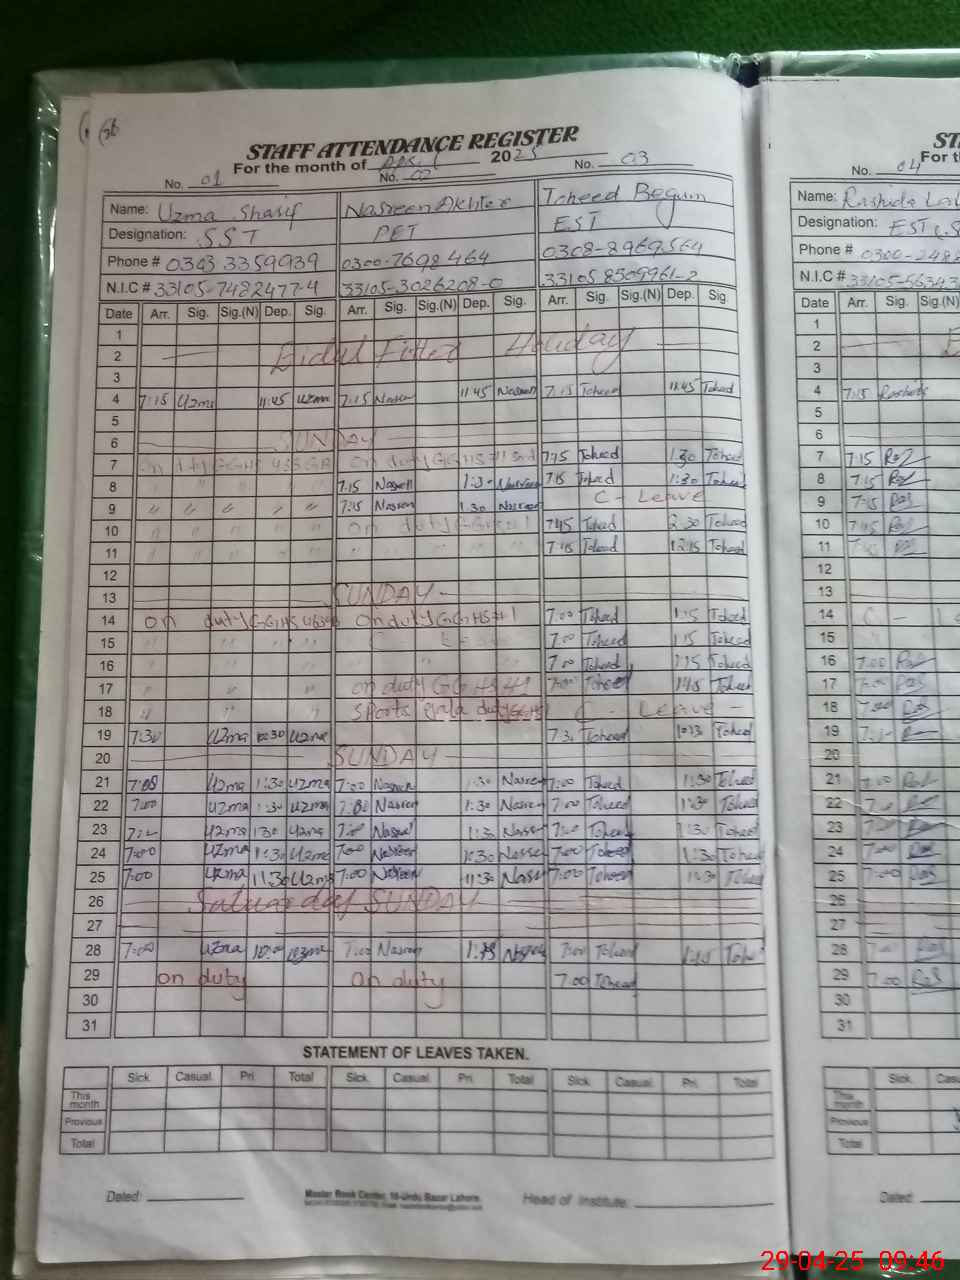 STAFF ATTENDANCE REGISTER
For the month of April 2025
No. 01 No. 02 No. 03
Name: Uzma Sharif Nasreen Akhter Toheed Begum
Designation: SST PET EST
Phone # 0343 3359939 0300-7698464 0308-8969564
N.I.C # 33105-7482477-4 33105-3026208-0 33105 8509961-2
Date Arr. Sig. Sig.(N) Dep. Sig. Arr. Sig. Sig.(N) Dep. Sig. Arr. Sig. Sig.(N) Dep. Sig.
1
2 Eidul Fitter Holiday
3
4 7:15 Uzma 11:45 Uzma 7:15 Nasreen 11:45 Nasreen 7:15 Toheed 11:45 Toheed
5
6 SUNDAY
7 on duty GGHS on duty GGHS#1 7:45 Toheed 1:30 Toheed
8 " " " " 7:15 Nasreen 1:30 Nasreen 7:15 Toheed 1:30 Toheed
9 " " " " " 7:15 Nasreen 1:30 Nasreen C- Leave
10 " " " " on duty 7:45 Toheed 2:30 Toheed
11 " " " " " " " " 7:15 Toheed 12:15 Toheed
12
13 SUNDAY
14 on duty GGHS on duty GGHS#1 7:00 Toheed 1:15 Toheed
15 " " " C Leave 7:00 Toheed 1:15 Toheed
16 " " " " " 7:00 Toheed 1:15 Toheed
17 " " " on duty GGHS#1 7:00 Toheed 1:45 Toheed
18 " " " Sports gala duty C - Leave -
19 7:30 Uzma 10:30 Uzma 7:3 Toheed Toheed
20 SUNDAY
21 7:00 Uzma 1:30 Uzma 7:00 Nasreen 1:30 Nasreen 7:00 Toheed 1:30 Toheed
22 7:00 Uzma 1:30 Uzma 7:00 Nasreen 1:30 Nasreen 7:00 Toheed 1:30 Toheed
23 Uzma 130 Uzma 7:00 Nasreen 1:30 Nasreen 7:00 Toheed 1:30 Toheed
24 7:00 Uzma 1:30 Uzma 7:00 Nasreen 1:30 Nasreen 7:00 Toheed 1:30 Toheed
25 7:00 Uzma 11:30 Uzma 7:00 Nasreen 11:30 Nasreen 7:00 Toheed 11:30 Toheed
26 Saturday SUNDAY
27
28 7:00 Uzma Uzma 7:00 Nasreen Nasreen 7:00 Toheed 1:15 Toheed
29 on duty on duty 7:00 Toheed
30
31
STATEMENT OF LEAVES TAKEN.
Sick. Casual. Pri. Total Sick. Casual. Pri. Total Sick. Casual. Pri. Total
This month
Previous
Total
Dated: Master Book Center, 16-Urdu Bazar Lahore. Head of Institute:
No. 04
Name: Rashida
Designation: EST
Phone # 0300-248
N.I.C # 33105-5634
Date Arr. Sig. Sig.(N)
1
2
3
4 7:15
5
6
7 7:15
8 7:15
9 7:15
10 7:45
11
12
13
14 C -
15
16 7:00
17 7:00
18 7:00
19
20
21 7:00
22
23
24 7:00
25 7:00
26
27
28
29 7:00
30
31
Sick.
This month
Previous
Total
Dated:
29-04-25 09:46